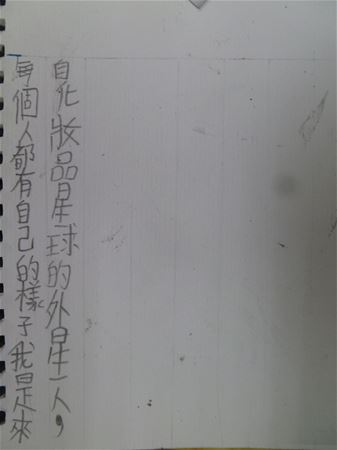 每個人都有自己的樣子我是來
自化妝品星球的外星人，